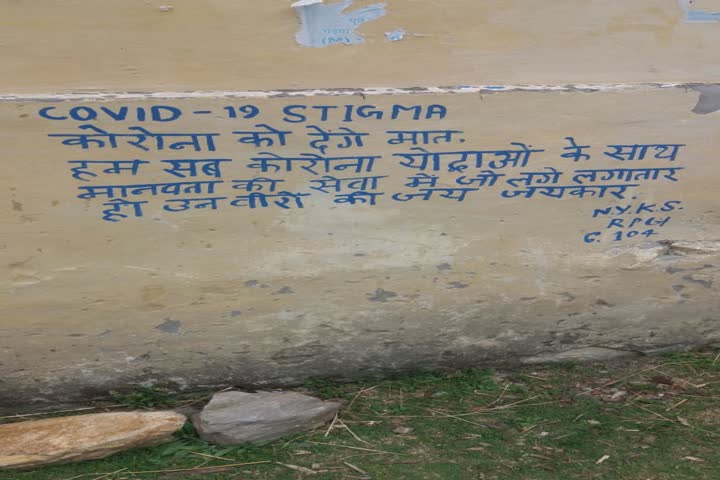 COVID-19 STIGMA
कोरोना को देंगे मात.
हम सब कोरोना योद्धाओं के साथ
मानवता की सेवा में जो लगे लगातार
हो उन वीरों की जय जयकार
N.Y.K.S.
RPG
C. 104